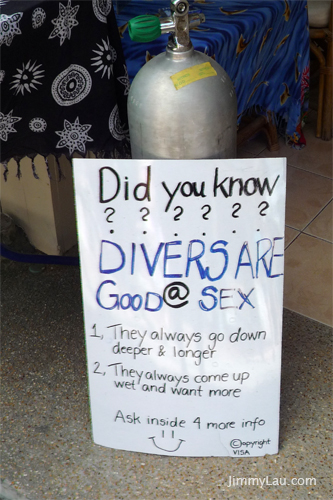 Did you know
? ? ? ? ? ?
DIVERS ARE
GOOD @ SEX
1, They always go down
deeper & longer
2, They always come up
wet and want more
Ask inside 4 more info
©opyright
VISA
JimmyLau.com